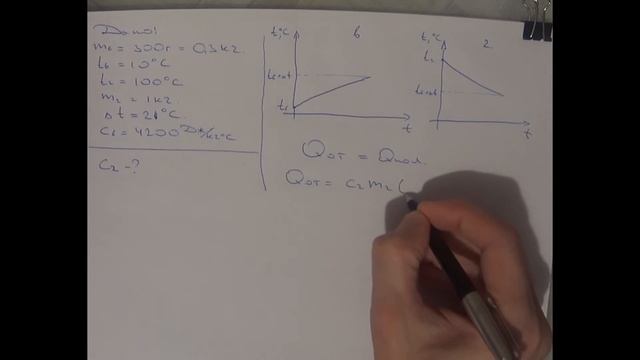 Дано:
m₆ = 300г = 0,3 кг.
t₆ = 10°C
t₂ = 100°C
m₂ = 1кг.
Δt = 21°C.
C₆ = 4200 Дж/кг°C
C₂ - ?
t,°C
в
t₁
t
t,°C
2
t₂
t
Qот = Qпол.
Qот = C₂m₂(